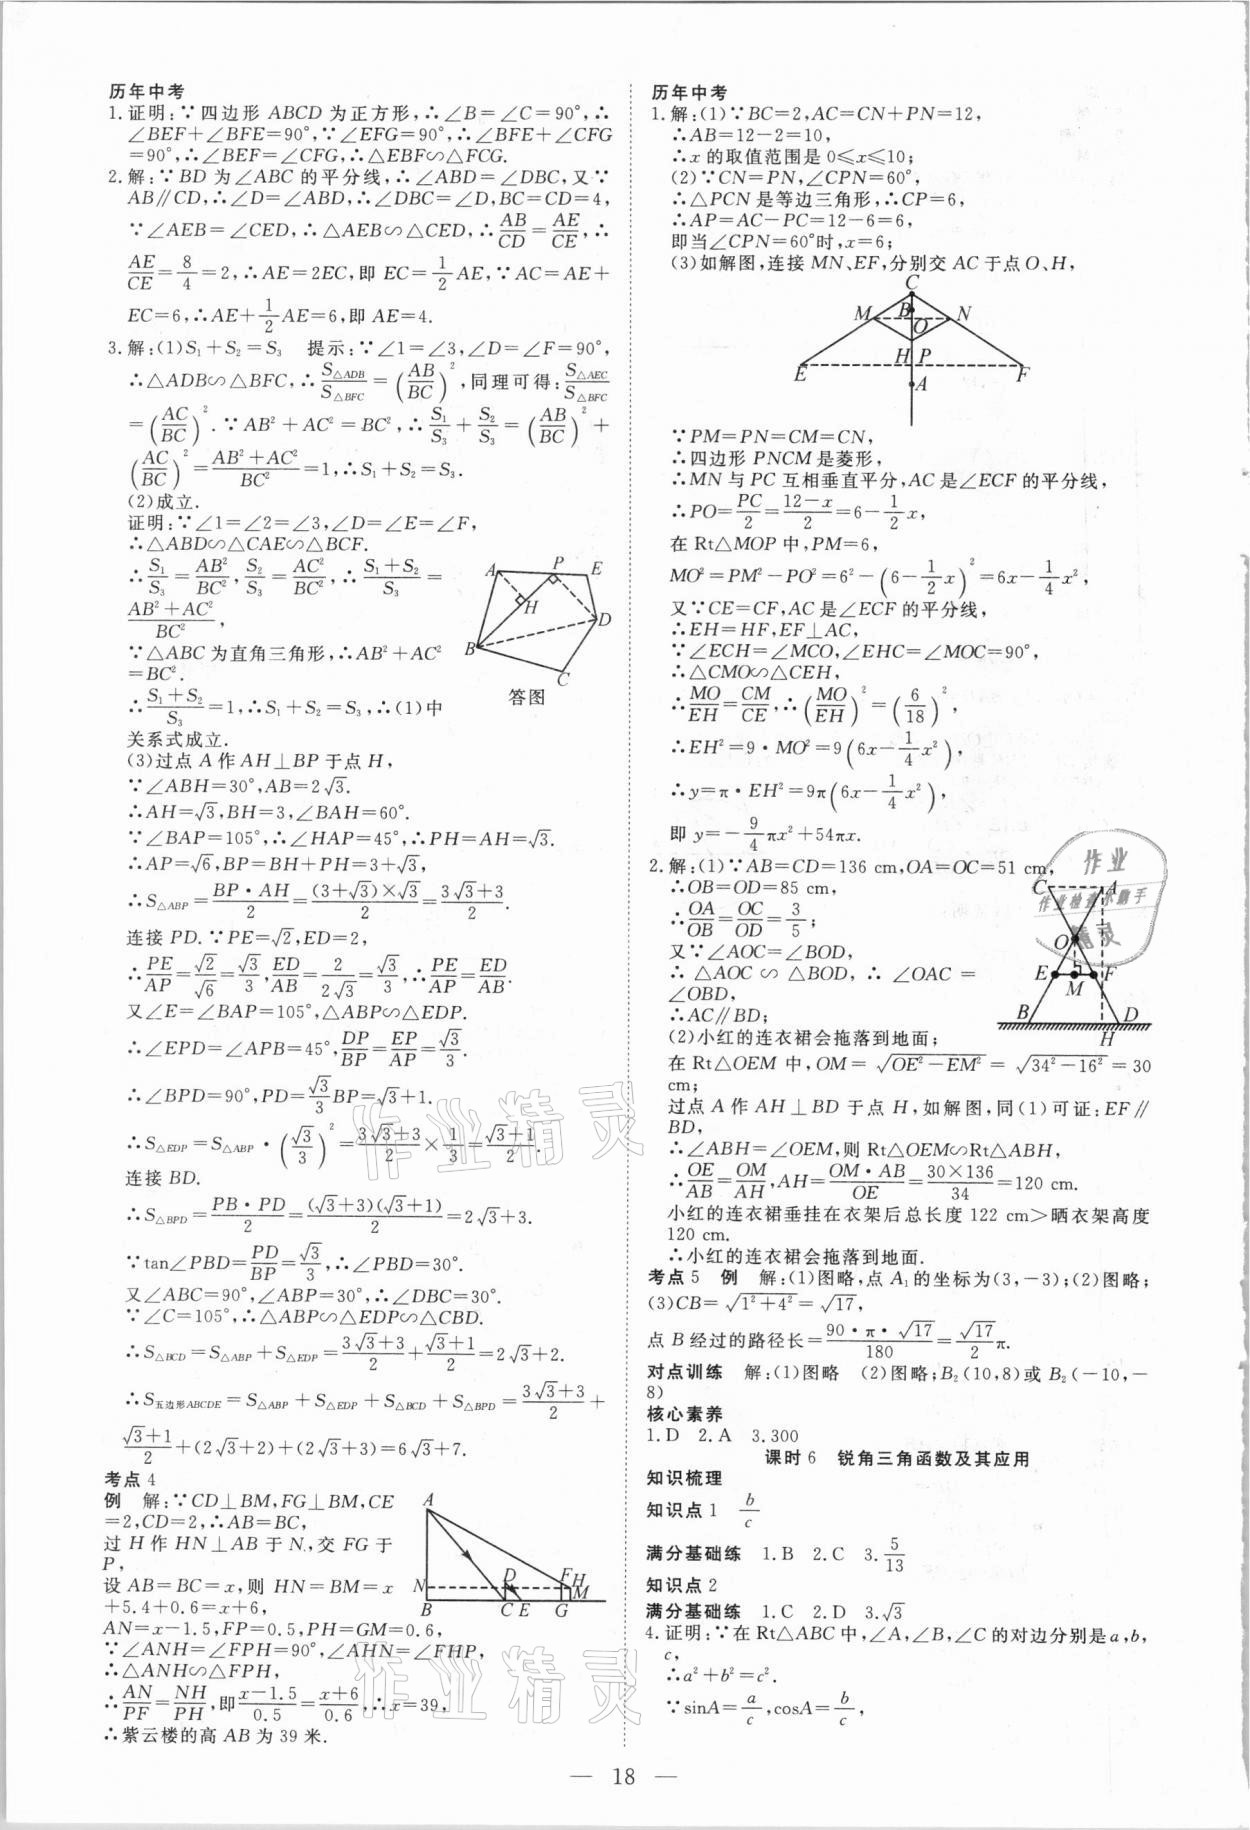 历年中考
1.证明:∵四边形 ABCD 为正方形,∴∠B=∠C=90°,∴
∠BEF+∠BFE=90°,∵∠EFG=90°,∴∠BFE+∠CFG
=90°,∴∠BEF=∠CFG,∴△EBF∽△FCG.
2.解:∵BD 为∠ABC 的平分线,∴∠ABD=∠DBC,又∵
AB∥CD,∴∠D=∠ABD,∴∠DBC=∠D,BC=CD=4,
∵∠AEB=∠CED,∴△AEB∽△CED,∴AB/CD=AE/CE,∴
AE/CE=8/4=2,∴AE=2EC,即 EC=1/2AE,∵AC=AE+
EC=6,∴AE+1/2AE=6,即 AE=4.
3.解:(1)S₁+S₂=S₃ 提示:∵∠1=∠3,∠D=∠F=90°,
∴△ADB∽△BFC,∴S△ADB/S△BFC=(AB/BC)²,同理可得:S△AEC/S△BFC
=(AC/BC)².∵AB²+AC²=BC²,∴S₁/S₃+S₂/S₃=(AB/BC)²+
(AC/BC)²=(AB²+AC²)/BC²=1,∴S₁+S₂=S₃.
(2)成立.
证明:∵∠1=∠2=∠3,∠D=∠E=∠F,
∴△ABD∽△CAE∽△BCF.
∴S₁/S₃=AB²/BC²,S₂/S₃=AC²/BC²,∴(S₁+S₂)/S₃=
(AB²+AC²)/BC²,
∵△ABC 为直角三角形,∴AB²+AC²
=BC².
∴(S₁+S₂)/S₃=1,∴S₁+S₂=S₃,∴(1)中
关系式成立.
A P E
H
D
B
C
答图
(3)过点 A 作 AH⊥BP 于点 H,
∵∠ABH=30°,AB=2√3.
∴AH=√3,BH=3,∠BAH=60°.
∵∠BAP=105°,∴∠HAP=45°,∴PH=AH=√3.
∴AP=√6,BP=BH+PH=3+√3,
∴S△ABP=BP·AH/2=(3+√3)×√3/2=(3√3+3)/2.
连接 PD.∵PE=√2,ED=2,
∴PE/AP=√2/√6=√3/3,ED/AB=2/2√3=√3/3,∴PE/AP=ED/AB.
又∠E=∠BAP=105°,△ABP∽△EDP.
∴∠EPD=∠APB=45°,DP/BP=EP/AP=√3/3.
∴∠BPD=90°,PD=√3/3BP=√3+1.
∴S△EDP=S△ABP·(√3/3)²=(3√3+3)/2×1/3=(√3+1)/2.
连接 BD.
∴S△BPD=PB·PD/2=(√3+3)(√3+1)/2=2√3+3.
∵tan∠PBD=PD/BP=√3/3,∴∠PBD=30°.
又∠ABC=90°,∠ABP=30°,∴∠DBC=30°.
∵∠C=105°,∴△ABP∽△EDP∽△CBD.
∴S△BCD=S△ABP+S△EDP=(3√3+3)/2+(√3+1)/2=2√3+2.
∴S五边形ABCDE=S△ABP+S△EDP+S△BCD+S△BPD=(3√3+3)/2+
(√3+1)/2+(2√3+2)+(2√3+3)=6√3+7.
考点 4
例 解:∵CD⊥BM,FG⊥BM,CE
=2,CD=2,∴AB=BC,
过 H 作 HN⊥AB 于 N,交 FG 于
P,
设 AB=BC=x,则 HN=BM=x
+5.4+0.6=x+6,
AN=x-1.5,FP=0.5,PH=GM=0.6,
∵∠ANH=∠FPH=90°,∠AHN=∠FHP,
∴△ANH∽△FPH,
∴AN/PF=NH/PH,即(x-1.5)/0.5=(x+6)/0.6,∴x=39,
∴紫云楼的高 AB 为 39 米.
A
D F H
N M
B C E G
历年中考
1.解:(1)∵BC=2,AC=CN+PN=12,
∴AB=12-2=10,
∴x 的取值范围是 0≤x≤10;
(2)∵CN=PN,∠CPN=60°,
∴△PCN 是等边三角形,∴CP=6,
∴AP=AC-PC=12-6=6,
即当∠CPN=60°时,x=6;
(3)如解图,连接 MN、EF,分别交 AC 于点 O、H,
C
M B N
O
H P
E F
A
∵PM=PN=CM=CN,
∴四边形 PNCM 是菱形,
∴MN 与 PC 互相垂直平分,AC 是∠ECF 的平分线,
∴PO=PC/2=(12-x)/2=6-1/2x,
在 Rt△MOP 中,PM=6,
MO²=PM²-PO²=6²-(6-1/2x)²=6x-1/4x²,
又∵CE=CF,AC 是∠ECF 的平分线,
∴EH=HF,EF⊥AC,
∵∠ECH=∠MCO,∠EHC=∠MOC=90°,
∴△CMO∽△CEH,
∴MO/EH=CM/CE,∴(MO/EH)²=(6/18)²,
∴EH²=9·MO²=9(6x-1/4x²),
∴y=π·EH²=9π(6x-1/4x²),
即 y=-9/4πx²+54πx.
2.解:(1)∵AB=CD=136 cm,OA=OC=51 cm,
∴OB=OD=85 cm,
∴OA/OB=OC/OD=3/5;
又∵∠AOC=∠BOD,
∴△AOC∽△BOD,∴∠OAC=
∠OBD,
∴AC∥BD;
C A
O
E F
M
B D
H
(2)小红的连衣裙会拖落到地面;
在 Rt△OEM 中,OM=√(OE²-EM²)=√(34²-16²)=30
cm;
过点 A 作 AH⊥BD 于点 H,如解图,同(1)可证:EF∥
BD,
∴∠ABH=∠OEM,则 Rt△OEM∽Rt△ABH,
∴OE/AB=OM/AH,AH=OM·AB/OE=30×136/34=120 cm.
小红的连衣裙垂挂在衣架后总长度 122 cm>晒衣架高度
120 cm.
∴小红的连衣裙会拖落到地面.
考点 5 例 解:(1)图略,点 A₁的坐标为(3,-3);(2)图略;
(3)CB=√(1²+4²)=√17,
点 B 经过的路径长=90·π·√17/180=√17/2π.
对点训练 解:(1)图略 (2)图略;B₂(10,8)或 B₂(-10,-
8)
核心素养
1.D 2.A 3.300
课时 6 锐角三角函数及其应用
知识梳理
知识点 1 b/c
满分基础练 1.B 2.C 3.5/13
知识点 2
满分基础练 1.C 2.D 3.√3
4.证明:∵在 Rt△ABC 中,∠A,∠B,∠C 的对边分别是a,b,
c,
∴a²+b²=c².
∵sinA=a/c,cosA=b/c,
— 18 —
作业精灵
作业精灵
作业
作业检查小助手
精灵